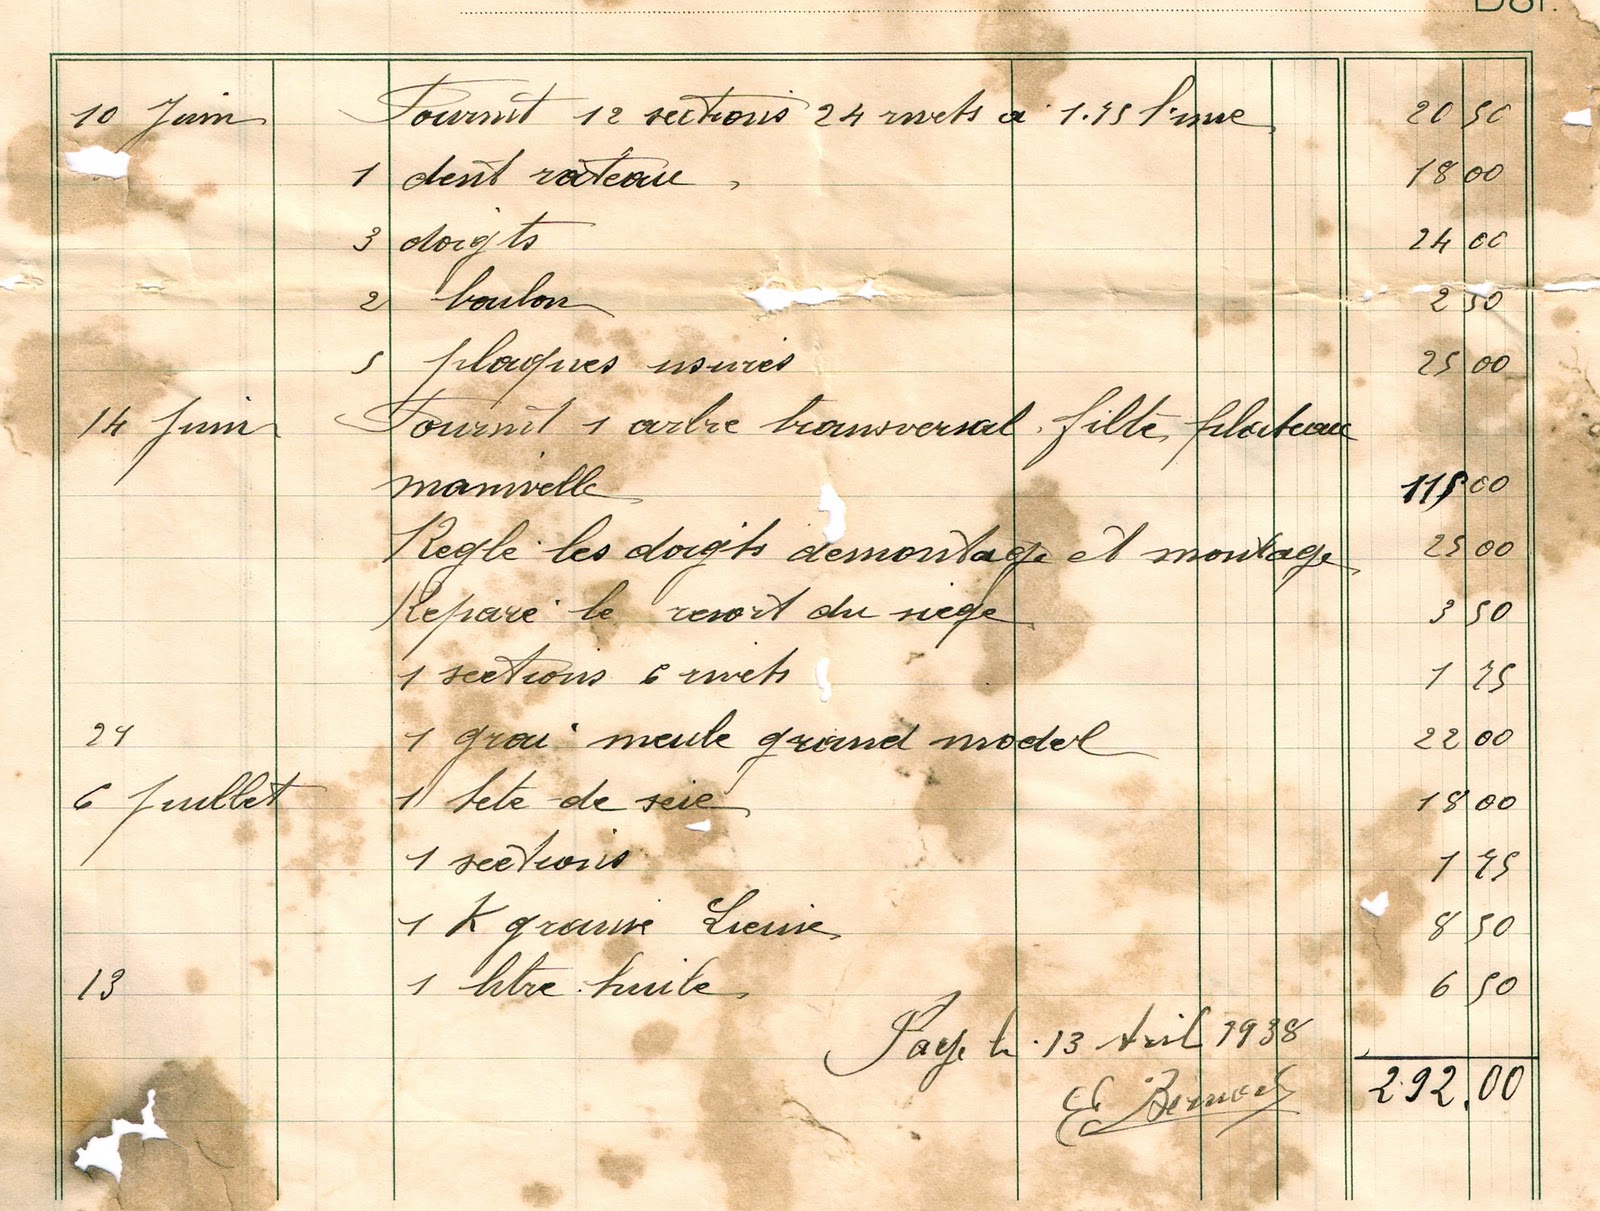 Doit
10 Juin Fournit 12 sections 24 rivets a 1.75 l'une 20 50
1 dent rateau 18 00
3 doigts 24 00
2 boulon 2 50
5 plaques usures 25 00
14 Juin Fournit 1 arbre transversal. filte, plateau
manivelle 115 00
Reglé les doigts demontage et montage 25 00
Reparé le resort du siege 3 50
1 sections 6 rivets 1 75
24 1 grai meule grand model 22 00
6 Juillet 1 tete de scie 18 00
1 sections 1 75
1 K graine Lieuse 8 50
13 1 litre huile 6 50
Payé le 13 Avril 1938
292.00